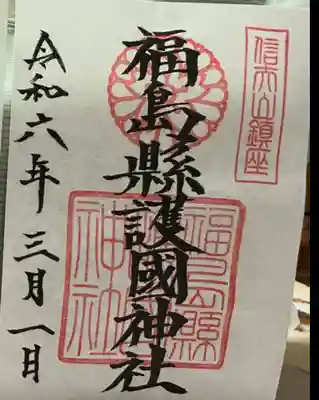 信夫山鎮座
福島縣護國神社
令和六年三月一日
福島縣
神社